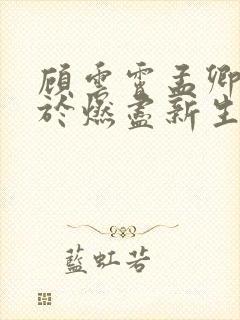 顾雲霄孟卿
於燃盡新生
藍虹若